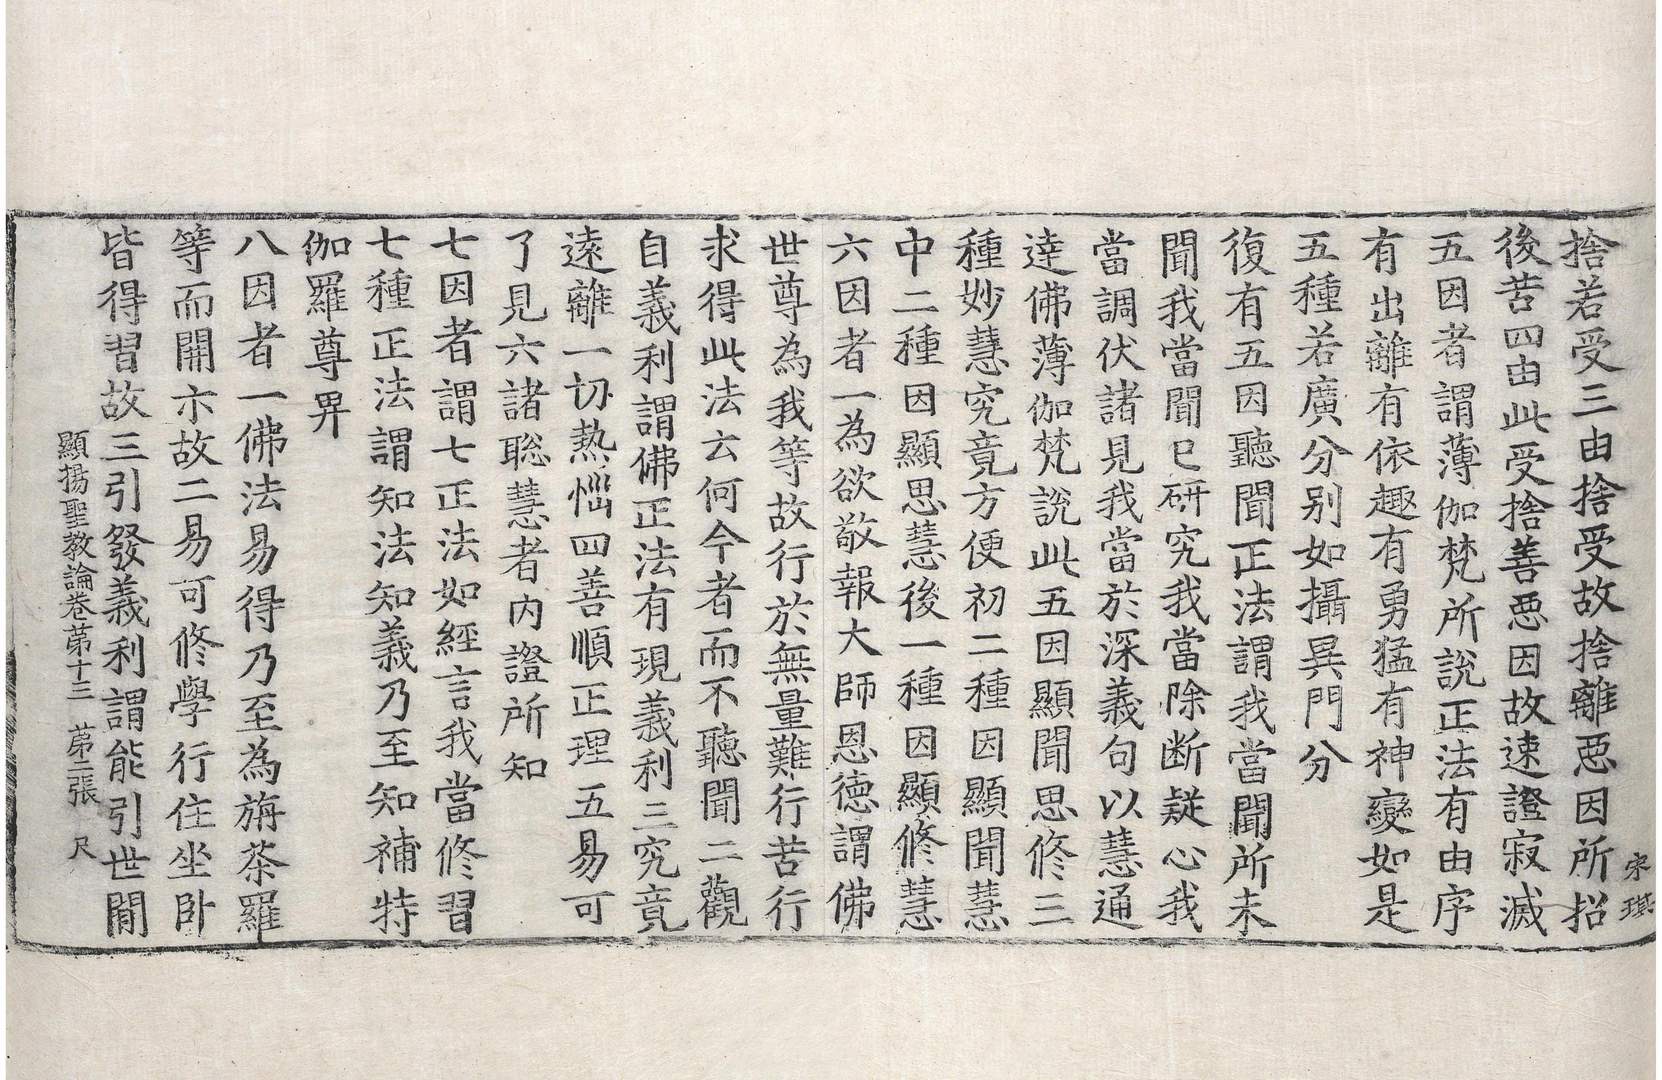 宋琪
捨若受三由捨受故捨離惡因所招
後苦四由此受捨善惡因故速證寂滅
五因者謂薄伽梵所說正法有由序
有出離有依趣有勇猛有神變如是
五種若廣分别如攝異門分
復有五因聽聞正法謂我當聞所未
聞我當聞已研究我當除断疑心我
當調伏諸見我當於深義句以慧通
達佛薄伽梵說此五因顯聞思修三
種妙慧究竟方便初二種因顯聞慧
中二種因顯思慧後一種因顯修慧
六因者一為欲敬報大師恩德謂佛
世尊為我等故行於無量難行苦行
求得此法云何今者而不聽聞二觀
自義利謂佛正法有現義利三究竟
遠離一切熱惱四善順正理五易可
了見六諸聡慧者內證所知
七因者謂七正法如經言我當修習
七種正法謂知法知義乃至知補特
伽羅尊卑
八因者一佛法易得乃至為旃荼羅
等而開亦故二易可修學行住坐卧
皆得習故三引發義利謂能引世閒
顯揚聖教論卷苐十三 苐二張 尺